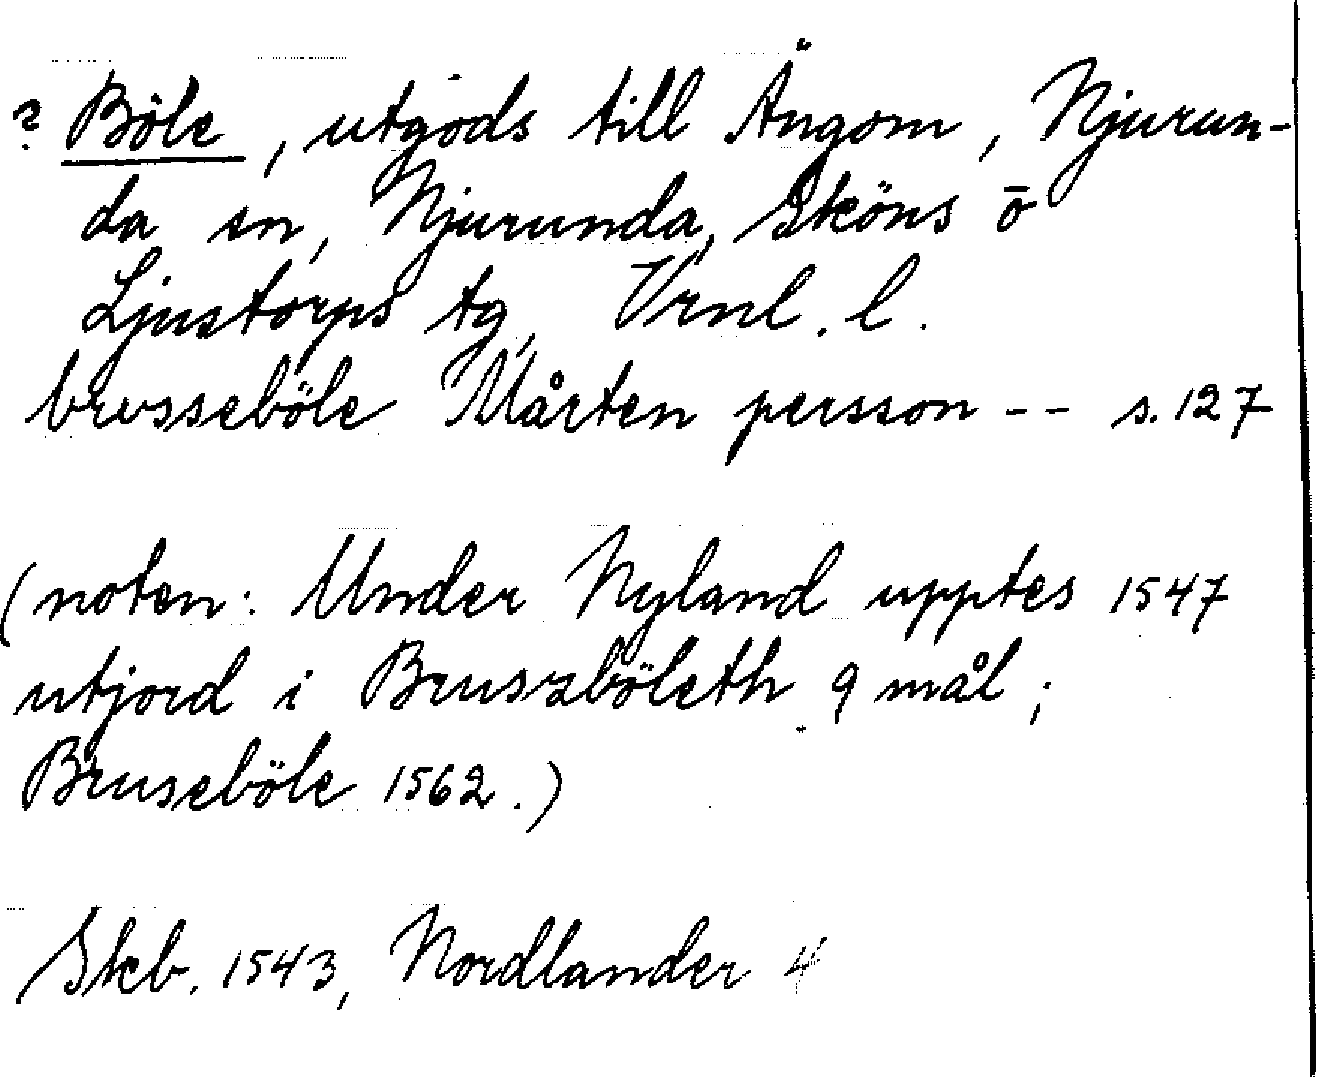 ? Böle, utgods till Ängom, Njurun-
da sn, Njurunda, Sköns o
Ljustorps tg, Vrnl. l.
brusseböle Mårten persson -- s. 127
(noten: Under Nyland upptes 1547
utjord i Bruszböleth 9 mål;
Bruseböle 1562.)
Skb. 1543, Nordlander 4